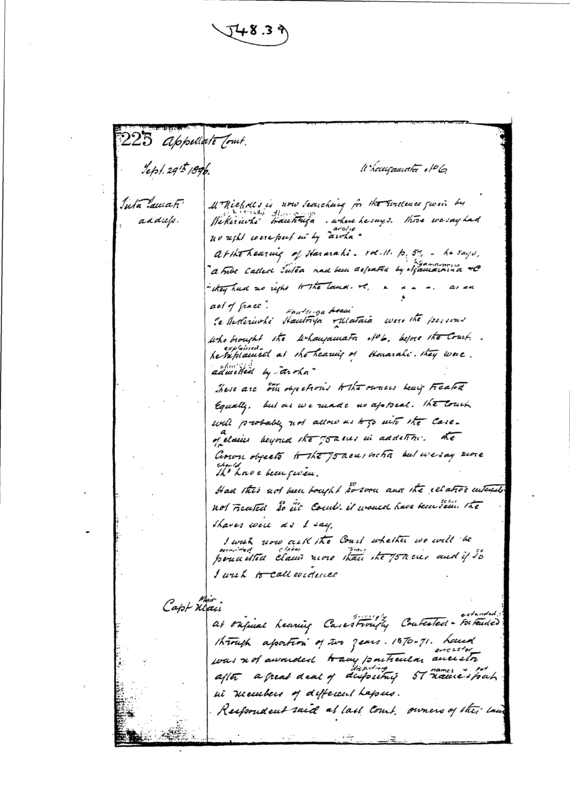 J48.39
225 Appellate Court.
Sept. 29th 1896. Whangamata No 6.
address.
Mr Nicholls is now searching for the evidence given by
where he says. those we say had
aroha
no right were put in by "aroha"
At the hearing of Hararahi - vol. 11. p. 57, - he says,
"a tribe called had been defeated by &c
"they had no right to the land. &c. x x x x. as an
act of grace".
were the persons
who brought the Whangamata No 6. before the Court.
explained
he explained at the hearing of Hararahi. they were
admitted
admitted by "aroha"
These are our objections to the owners being treated
Equally. but as we made no appeal. the Court
will probably not allow us to go into the Case
of claims beyond the 75 acres in addition. the
Crown objects to the 75 acres but we say more
should
shd have been given.
Had this not been bought so soon and the relative interests
not treated so in Court. it would have been seen. the
shares were as I say.
I wish now ask the Court whether we will be
permitted claim than
permitted claim more than the 75 acres and if so
I wish to call evidence
Mair
Capt Mair
strongly extended
as original hearing Case strongly Contested - extended
through a portion of two years. 1870-71. Land
ancestor
was not awarded to any particular ancestor
disputing names put
after a great deal of disputing 57 names put
in members of different hapus.
Respondent said at last Court. owners of this land